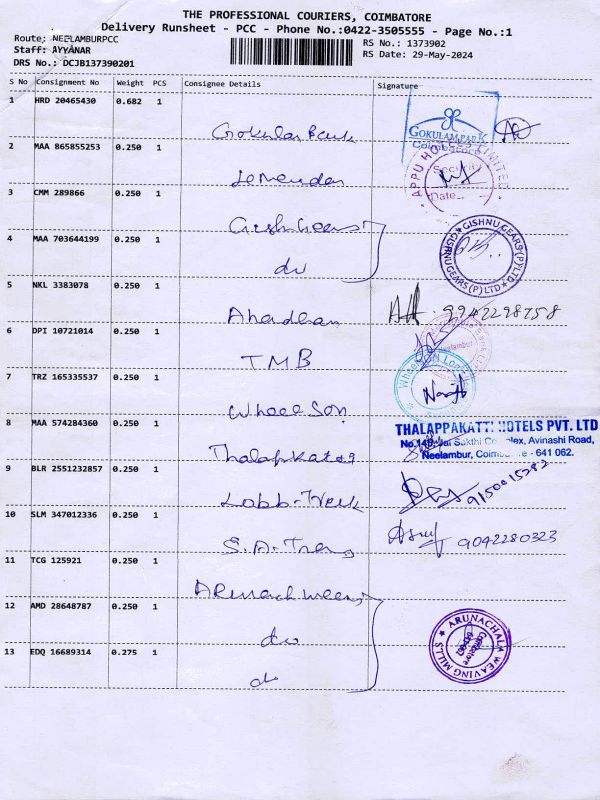 THE PROFESSIONAL COURIERS, COIMBATORE
Delivery Runsheet - PCC - Phone No.:0422-3505555 - Page No.:1
Route: NEELAMBURPCC
Staff: AYYANAR
DRS No.: DCJB137390201
RS No.: 1373902
RS Date: 29-May-2024
S No Consignment No Weight PCS Consignee Details Signature
1 HRD 20465430 0.682 1
Gokulam Park
GOKULAM PARK
Coimbatore
2 MAA 865855253 0.250 1
APPU HOTELS LIMITED
Security
Date
3 CMM 289866 0.250 1
4 MAA 703644199 0.250 1
do
GISHNU GEARS (P) LTD GISHNU GEARS (P) LTD
5 NKL 3383078 0.250 1
9942298758
6 DPI 10721014 0.250 1
TMB
Neelambur
7 TRZ 165335537 0.250 1
Wheel Son
8 MAA 574284360 0.250 1
THALAPPAKATTI HOTELS PVT. LTD
No.149, Jai Sakthi Complex, Avinashi Road,
Neelambur, Coimbatore - 641 062.
9 BLR 2551232857 0.250 1
9150015282
10 SLM 347012336 0.250 1
9042280323
11 TCG 125921 0.250 1
12 AMD 28648787 0.250 1
do
ARUNACHALA WEAVING MILLS
13 EDQ 16689314 0.275 1
do